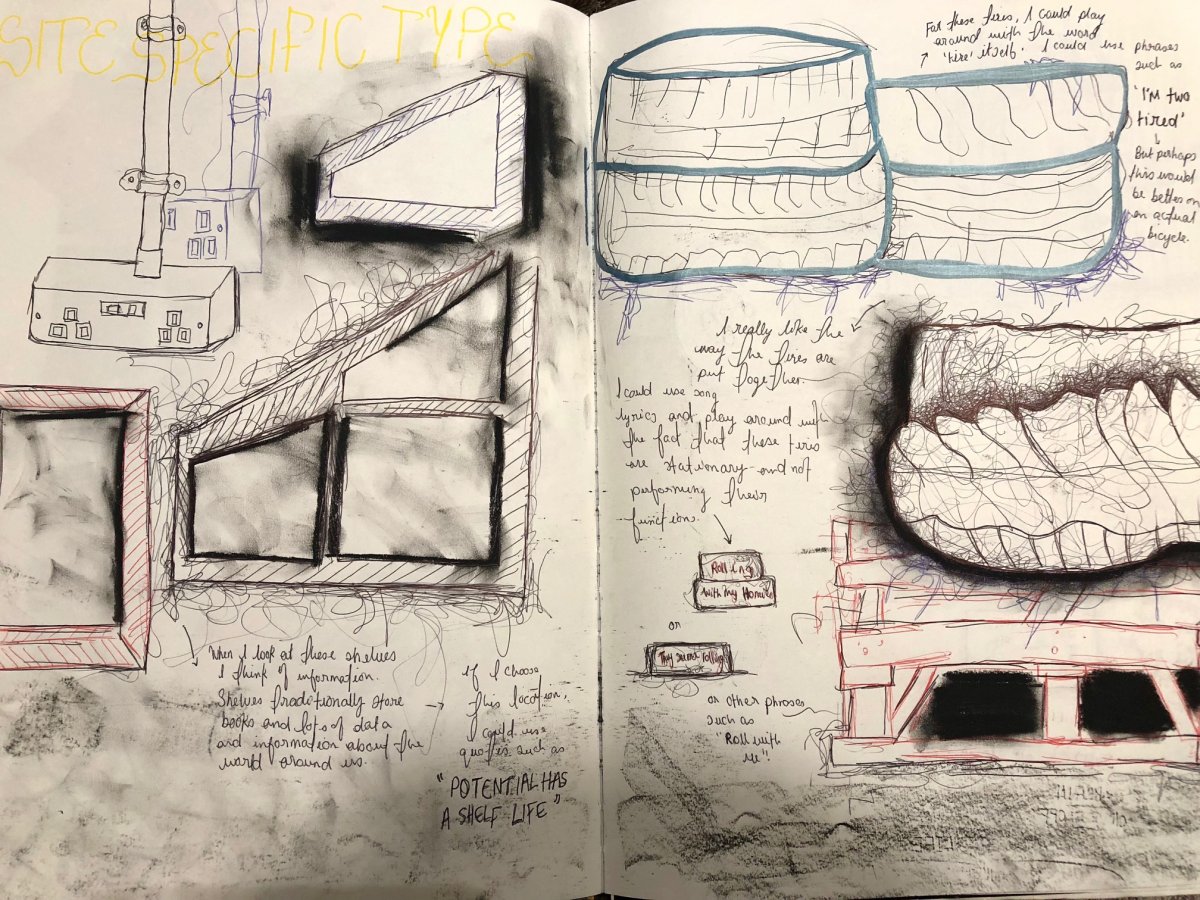 SITE SPECIFIC TYPE
When I look at these shelves
I think of information.
Shelves traditionally store
books and lots of data
and information about the
world around us.
If I choose
this location,
I could use
quotes such as
"POTENTIAL HAS
A SHELF LIFE"
For these tires, I could play
around with the word
'tire' itself. I could use phrases
such as
'I'M two
tired'
But perhaps
this would
be better on
an actual
bicycle.
I really like the
way the tires are
put together.
I could use song
lyrics and play around with
the fact that these tires
are stationary and not
performing their
functions.
Rolling
with my Homies
or
They
Rolling
or other phrases
such as
"Roll with
me"!